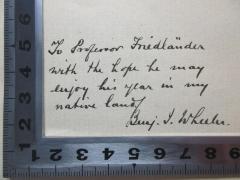 To Professor Friedländer
with the hope he may
enjoy his year in my
native land
Benj. I. Wheeler.
5 4 3 2 1
1 2 3 4 5 6 7 8 9 10 11 12 13 14 15